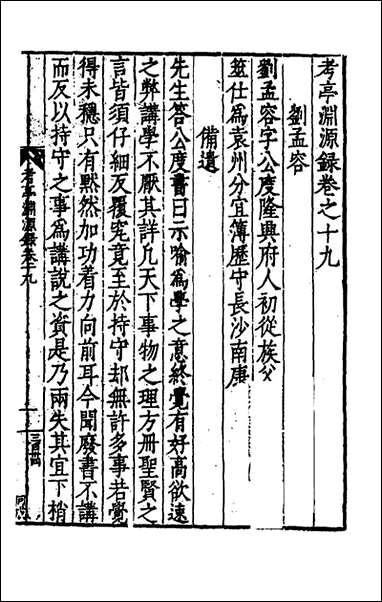 考亭淵源録卷之十九
劉孟容
劉孟容字公度隆興府人初從族父
筮仕爲袁州分宜簿歷守長沙南康
備遺
先生答公度書曰示喻爲學之意終覺有好高欲速
之弊講學不厭其詳凡天下事物之理方册聖賢之
言皆須仔細反覆究竟至於持守却無許多事若覺
得未穩只有默然加功着力向前耳今聞廢書不講
而反以持守之事爲講說之資是乃兩失其宜下梢
考亭淵源録卷十九